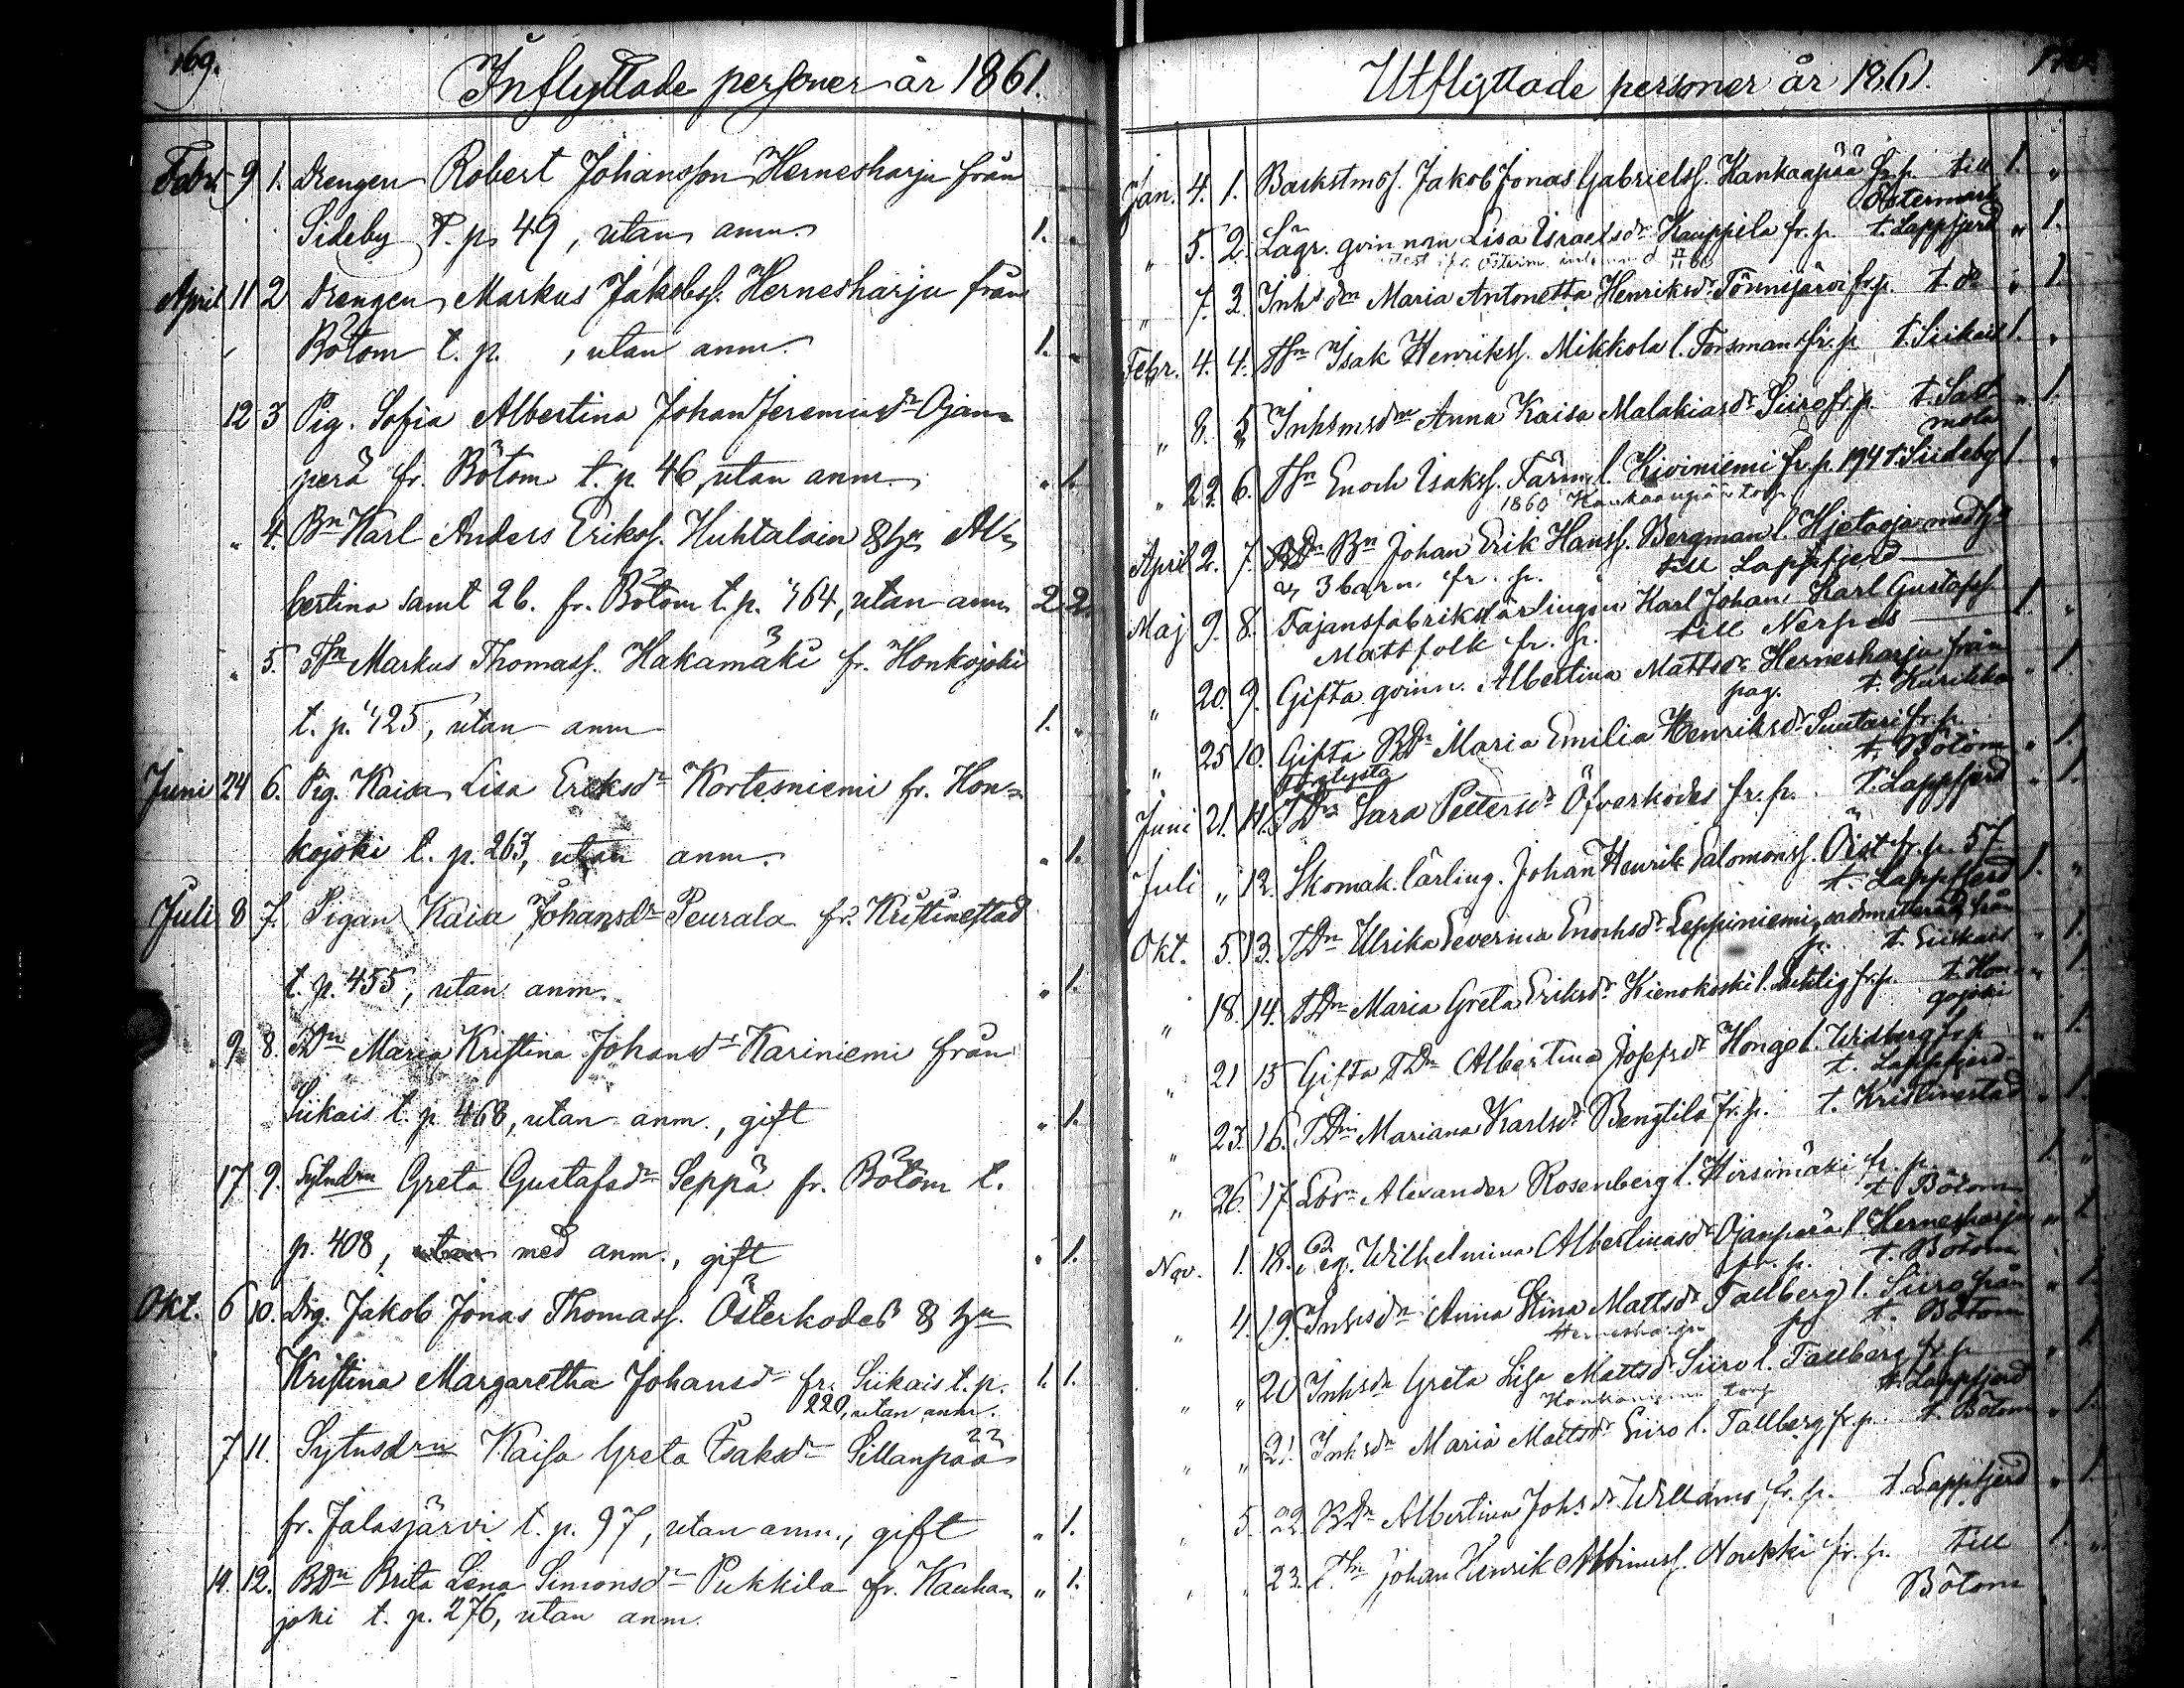 169.
Inflyttade personer år 1861.
Febr. 9 1. Drengen Robert Johansson Hernesharju från
Sideby t. p. 49, utan anm. 1. "
April 11 2 Drengen Markus Jakobss. Hernesharju från
Bötom t. p. , utan anm. 1. "
12 3 Pig. Sofia Albertina Johan Jeremiasdr Ojan=
perä fr. Bötom t. p. 46, utan anm. " 1.
" 4. Bn Karl Anders Erikss. Huhtalain & hu Al=
bertina samt 2 b. fr. Bötom t. p. 464, utan anm 2 2
" 5. Thn Markus Thomass. Hakamäki fr. Honkojoki
t. p. 425, utan anm 1. "
Juni 24 6. Pig. Kaisa Lisa Eriksdr Kortesniemi fr. Hon=
kojoki t. p. 263, utan anm. " 1.
Juli 8 7. Pigan Kaisa Johansdr Peurala fr. Kristinestad
t. p. 455, utan anm. " 1.
" 9. 8. TDn Maria Kristina Johansdr Kariniemi från
Siikais t. p. 468, utan anm., gift " 1.
17 9. Sytndrn Greta Gustafsdr Seppä fr. Bötom t.
p. 408, utan med anm., gift " 1.
Okt. 6 10. Drg. Jakob Jonas Thomass. Österkodes & hu
Kristina Margaretha Johansdr fr. Siikais t. p. 1. 1.
220, utan anm.
7 11. Sytnsdrn Kaisa Greta Isaksdr Sillanpää
fr. Jalasjärvi t. p. 97, utan anm., gift " 1.
14. 12. BDn Brita Lena Simonsdr Pukkila fr. Kauha= " 1.
joki t. p. 276, utan anm.
Utflyttade personer år 1861.
Jan. 4. 1. Backstmss. Jakob Jonas Gabrielss. Kankaapää fr. p. till 1. "
Östermark
" 5. 2. Lägr. qvinnan Lisa Israelsdr Kauppila fr. p. t. Lappfjerd " 1.
" 7. 3. Inhsdn Maria Antonetta Henriksdr Tönnijärvi fr. p. t. do " 1.
Febr. 4. 4. Thn Isak Henrikss. Mikkola l. Forsman fr. p. t. Siikais 1. "
" 8. 5 Inhsmsdn Anna Kaisa Malakiasdr Siiro fr. p. t. Sast= " 1.
mola
" 22. 6. Thn Enoch Isakss. Färm l. Kiviniemi fr. p. 194 t. Siideby 1. "
1860 Kankaanpään torp
April 2. 7. Bn Johan Erik Hanss. Bergman l. Hjetaoja med hu
& 3 barn fr. p. till Lappfjerd
Maj 9. 8. Fajansfabrikslärlingen Karl Johan Karl Gustafss. 1. "
Mattfolk fr. p. till Nerpes
" 20. 9. Gifta qvinn. Albertina Mattsdr Hernesharju från " 1.
pag. t. Kurikka
" 25 10. Gifta BDn Maria Emilia Henriksdr Suutari fr. p.
t. Bötom " 1.
Juni 21. 11. TDn Sara Pettersdr Öfverkodes fr. p. t. Lappfjerd " 1.
Juli " 12. Skomak. lärling. Johan Henrik Salomonss. Öist fr. p. 57
t. Lappfjerd 1. "
Okt. 5. 13. TDn Ulrika Severina Enochsdr Leppiniemi från
p. t. Siikais " 1.
" 18. 14. TDn Maria Greta Eriksdr Kienokoski l. fr. p. t. Hon= " 1.
gojoki
" 21 15 Gifta TDn Albertina Josefsdr Hongo l. Widberg fr. p. " 1.
t. Lappfjerd
" 23. 16. TDn Mariana Karlsdr Bengtila fr. p. t. Kristinestad " 1.
" 26. 17. Alexander Rosenberg l. Hirsimäki fr. p. 1. "
t. Bötom
Nov. 1. 18. Pig. Wilhelmina Albertinasdr Ojanperä l. Hernesharju " 1.
fr. p. t. Bötom
" 4. 19. Inhsdn Anna Stina Mattsdr Tallberg l. Siiro från " 1.
Hernesharju p. t. Bötom
" " 20 Inhsdn Greta Lisa Mattsdr Siiro l. Tallberg fr. p. " 1.
t. Lappfjerd
" " 21. Inhsdn Maria Mattsdr Siiro l. Tallberg fr. p. t. Bötom " 1.
" 5. 22 BDn Albertina Johsdr Willams fr. p. t. Lappfjerd " 1.
" " 23. Thn Johan Henrik fr. p. till 1. "
Bötom